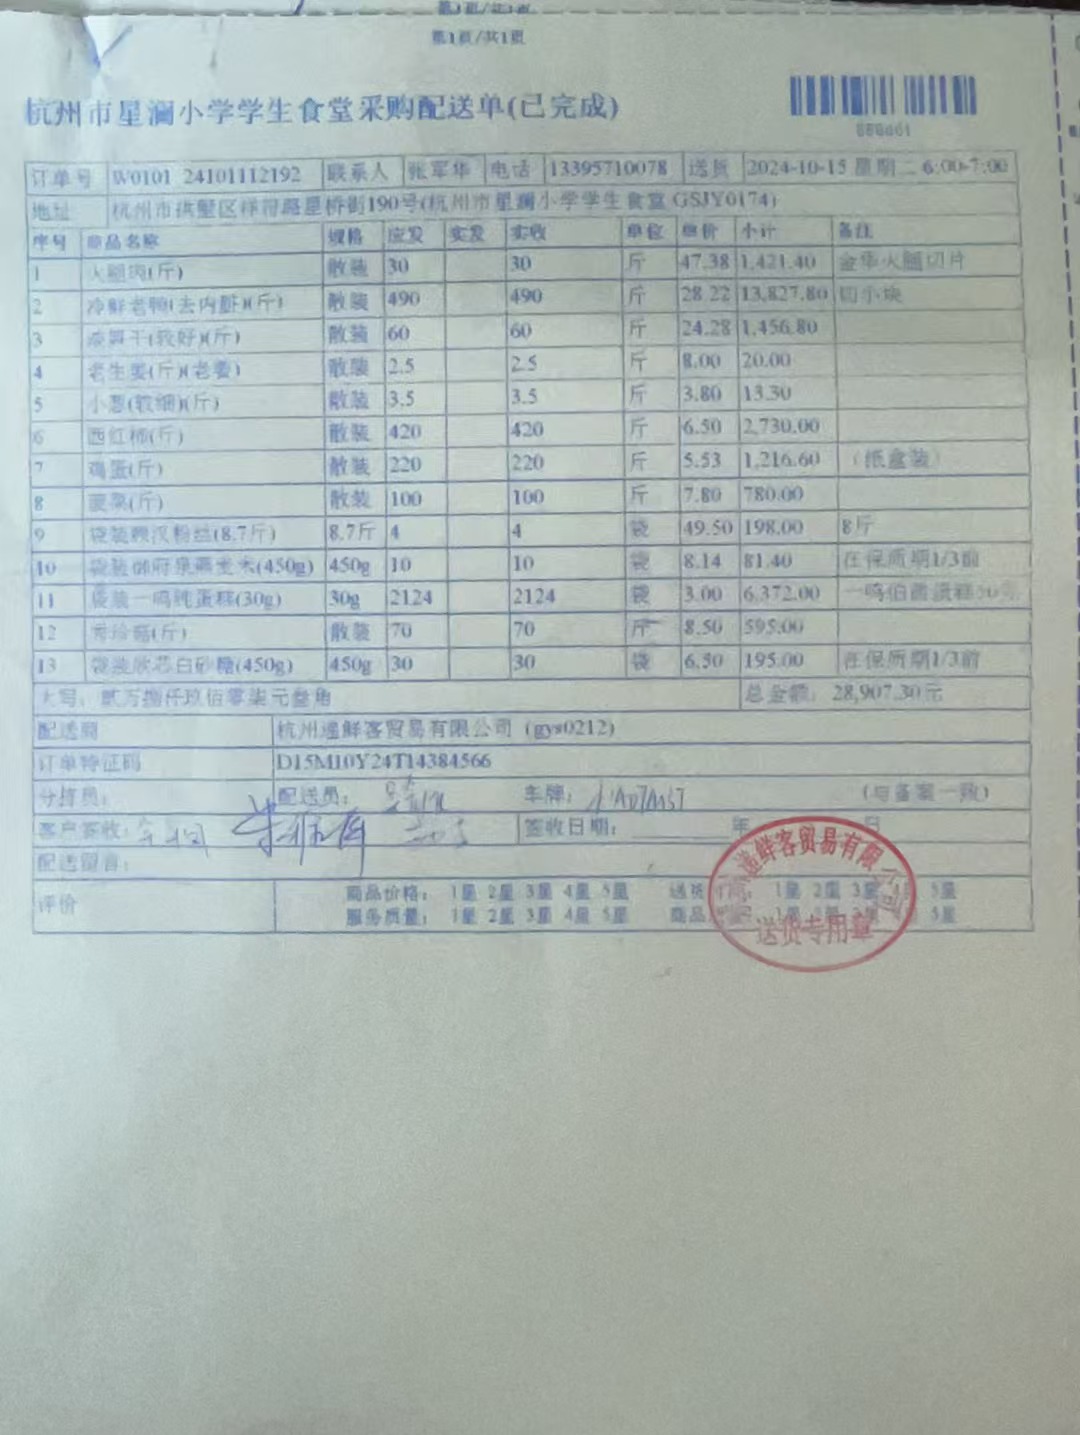 第1页/共1页
第1页/共1页
杭州市星澜小学学生食堂采购配送单(已完成)
订单号 W0101 24101112192 联系人 张军华 电话 13395710078 送货 2024-10-15 星期二 6:00-7:00
地址 杭州市拱墅区祥符路星桥街190号(杭州市星澜小学学生食堂 GSJY0174)
序号 商品名称 规格 应发 实发 实收 单位 单价 小计 备注
1 火腿肉(斤) 散装 30 30 斤 47.38 1,421.40 金华火腿切片
2 冷鲜老鸭(去内脏)(斤) 散装 490 490 斤 28.22 13,827.80 切小块
3 笋干(较好)(斤) 散装 60 60 斤 24.28 1,456.80
4 老生姜(斤)(老姜) 散装 2.5 2.5 斤 8.00 20.00
5 小葱(较细)(斤) 散装 3.5 3.5 斤 3.80 13.30
6 西红柿(斤) 散装 420 420 斤 6.50 2,730.00
7 鸡蛋(斤) 散装 220 220 斤 5.53 1,216.60 (纸盒装)
8 菜(斤) 散装 100 100 斤 7.80 780.00
9 袋装粉丝(8.7斤) 8.7斤 4 4 袋 49.50 198.00 8斤
10 袋装御府泉燕麦米(450g) 450g 10 10 袋 8.14 81.40 在保质期1/3前
11 袋装一鸣纯蛋糕(30g) 30g 2124 2124 袋 3.00 6,372.00 一鸣伯爵蛋糕30
12 秀珍菇(斤) 散装 70 70 斤 8.50 595.00
13 袋装欣芯白砂糖(450g) 450g 30 30 袋 6.50 195.00 在保质期1/3前
大写：贰万捌仟玖佰零柒元叁角 总金额：28,907.30元
配送商 杭州递鲜客贸易有限公司 (gys0212)
订单特征码 D15M10Y24T14384566
分拣员： 配送员： 车牌： (与备案一致)
客户签收： 签收日期： 年 日
配送留言：
评价 商品价格： 1星 2星 3星 4星 5星 送货 1星 2星 3星 4星 5星
服务质量： 1星 2星 3星 4星 5星 商品 1星 2星 3星 4星 5星
递鲜客贸易有限公司
送货专用章